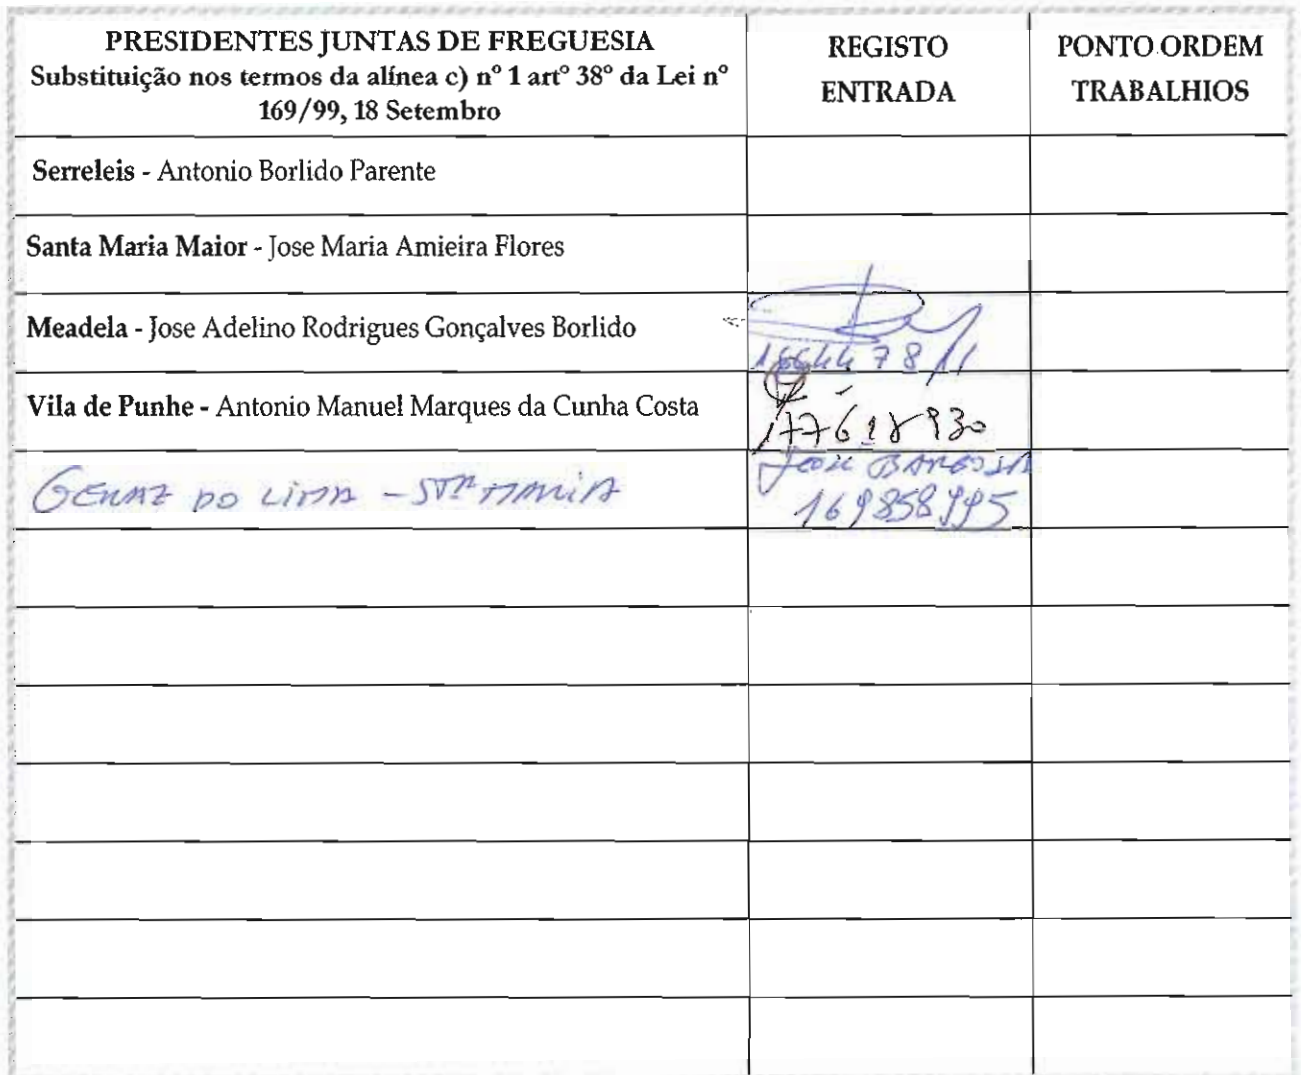 PRESIDENTES JUNTAS DE FREGUESIA
Substituição nos termos da alínea c) nº 1 artº 38º da Lei nº
169/99, 18 Setembro
REGISTO
ENTRADA
PONTO ORDEM
TRABALHIOS
Serreleis - Antonio Borlido Parente
Santa Maria Maior - Jose Maria Amieira Flores
Meadela - Jose Adelino Rodrigues Gonçalves Borlido
Vila de Punhe - Antonio Manuel Marques da Cunha Costa
177618930
GERAZ DO LIMA - STA MARIA
JOSÉ BARBOSA
169858995